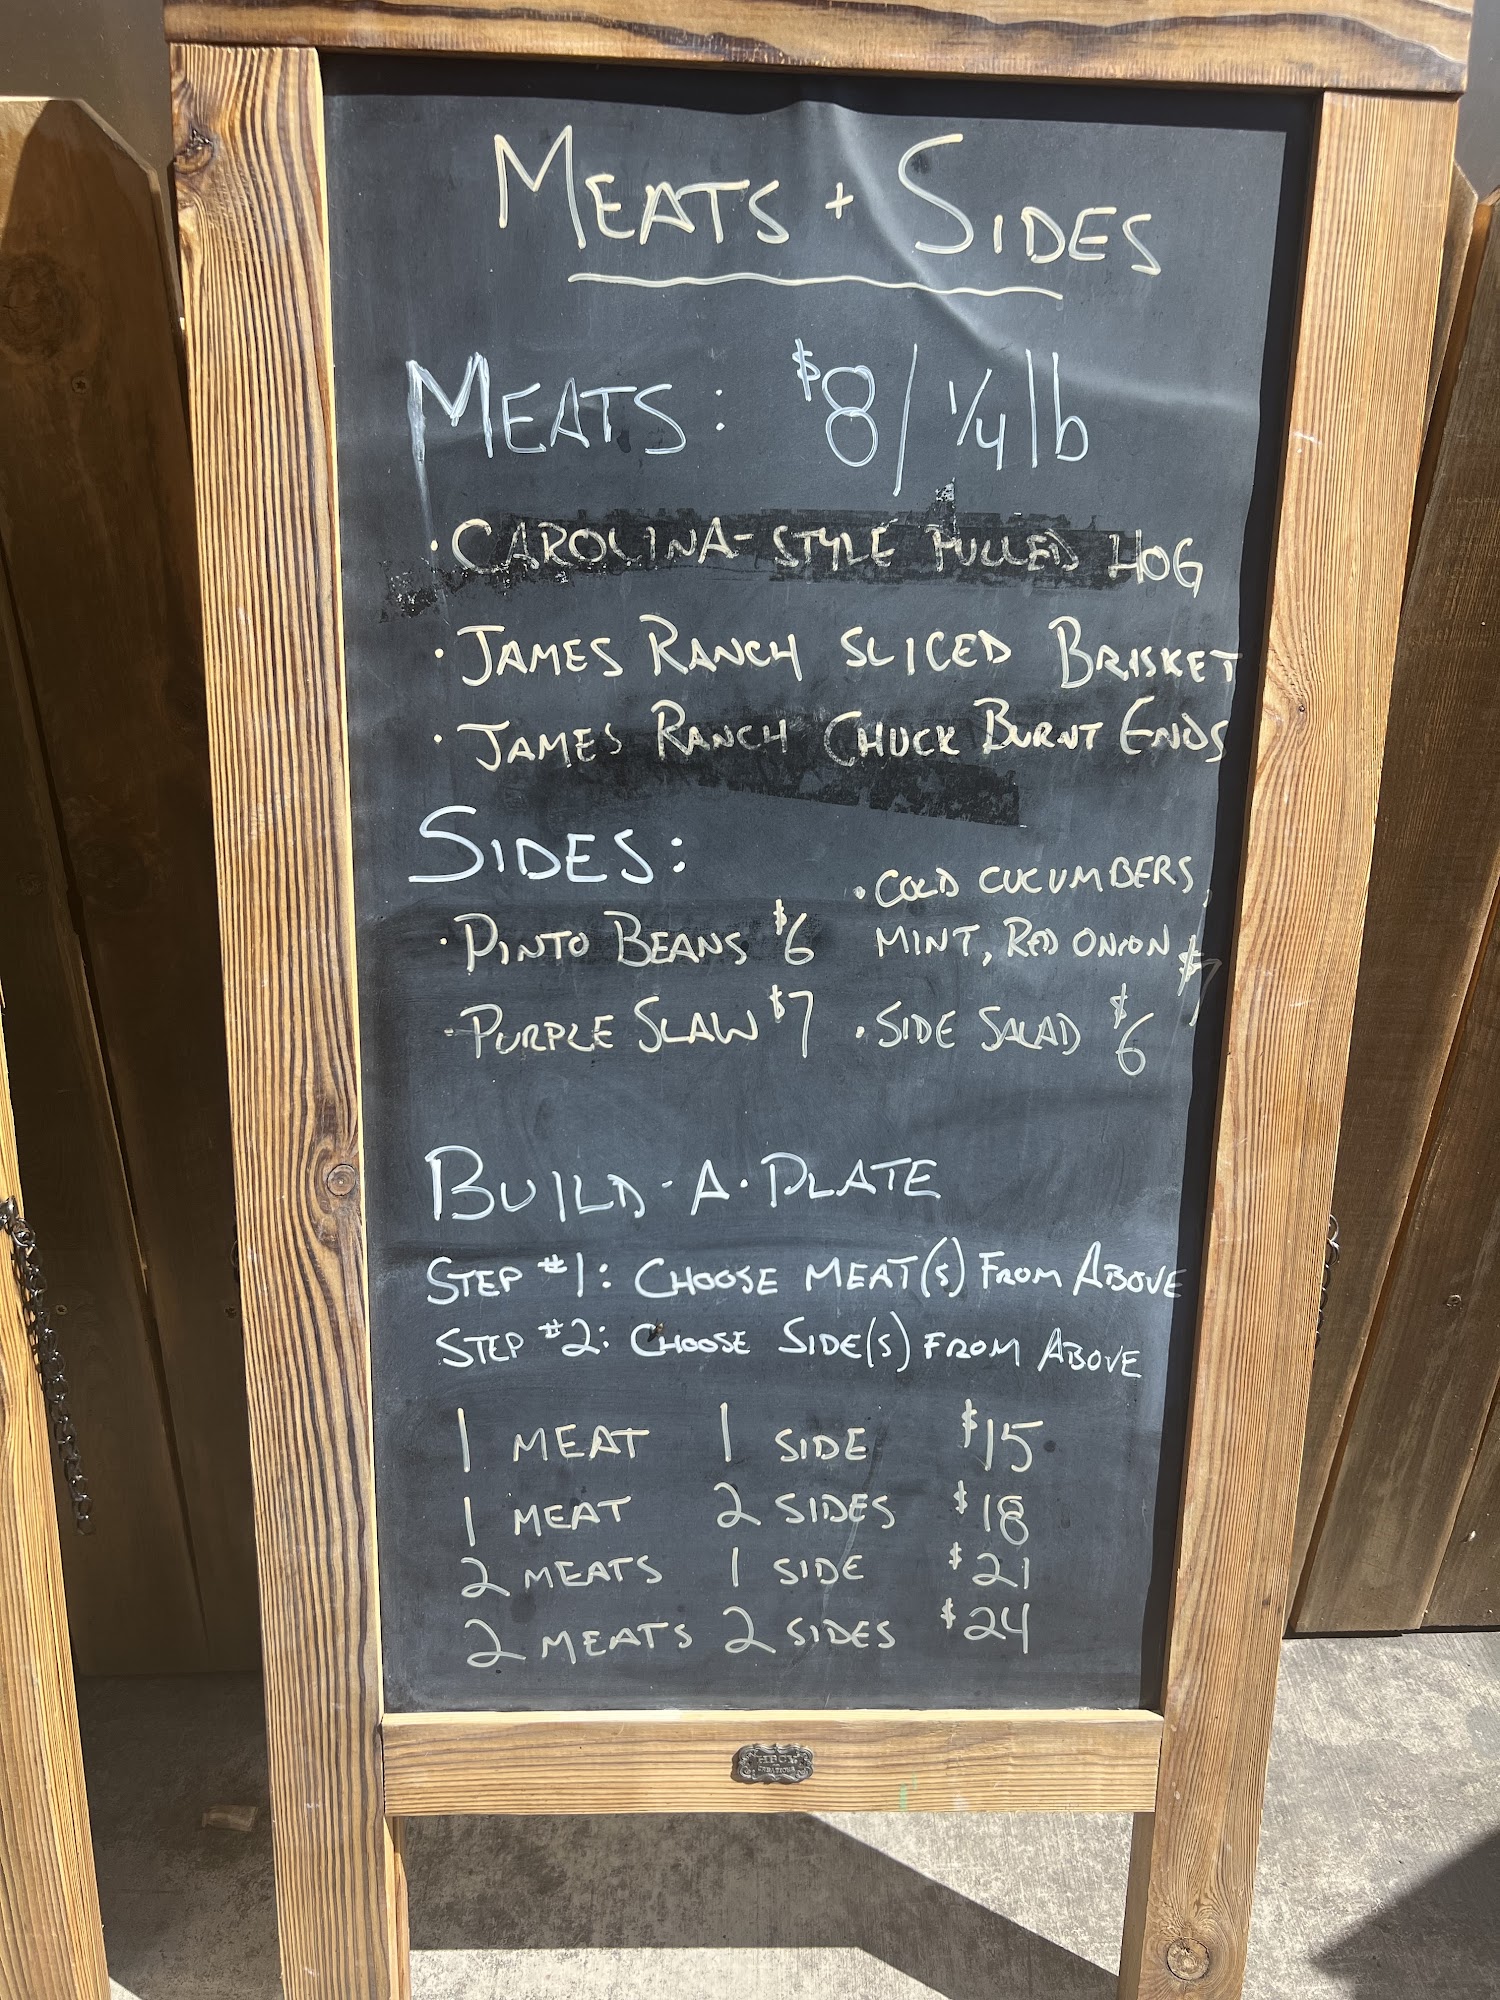 MEATS + SIDES
MEATS: $8/ 1/4 lb
· CAROLINA-STYLE PULLED HOG
· JAMES RANCH SLICED BRISKET
· JAMES RANCH CHUCK BURNT ENDS
SIDES:
· PINTO BEANS $6
· PURPLE SLAW $7
· COLD CUCUMBERS,
MINT, RED ONION $7
· SIDE SALAD $6
BUILD-A-PLATE
STEP #1: CHOOSE MEAT(S) FROM ABOVE
STEP #2: CHOOSE SIDE(S) FROM ABOVE
1 MEAT 1 SIDE $15
1 MEAT 2 SIDES $18
2 MEATS 1 SIDE $21
2 MEATS 2 SIDES $24